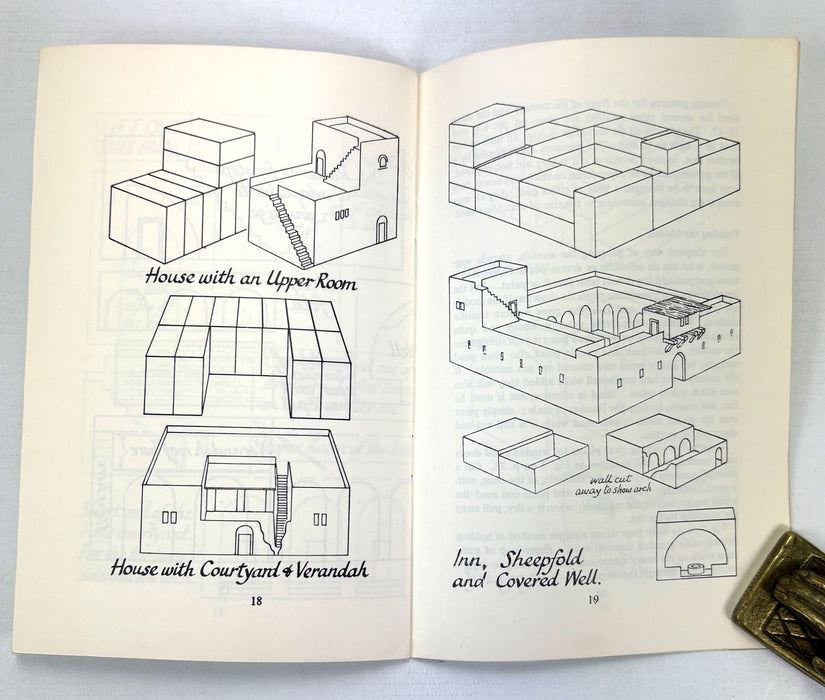 House with an Upper Room
House with Courtyard & Verandah
18
wall cut
away to show arch
Inn, Sheepfold
and Covered Well.
19